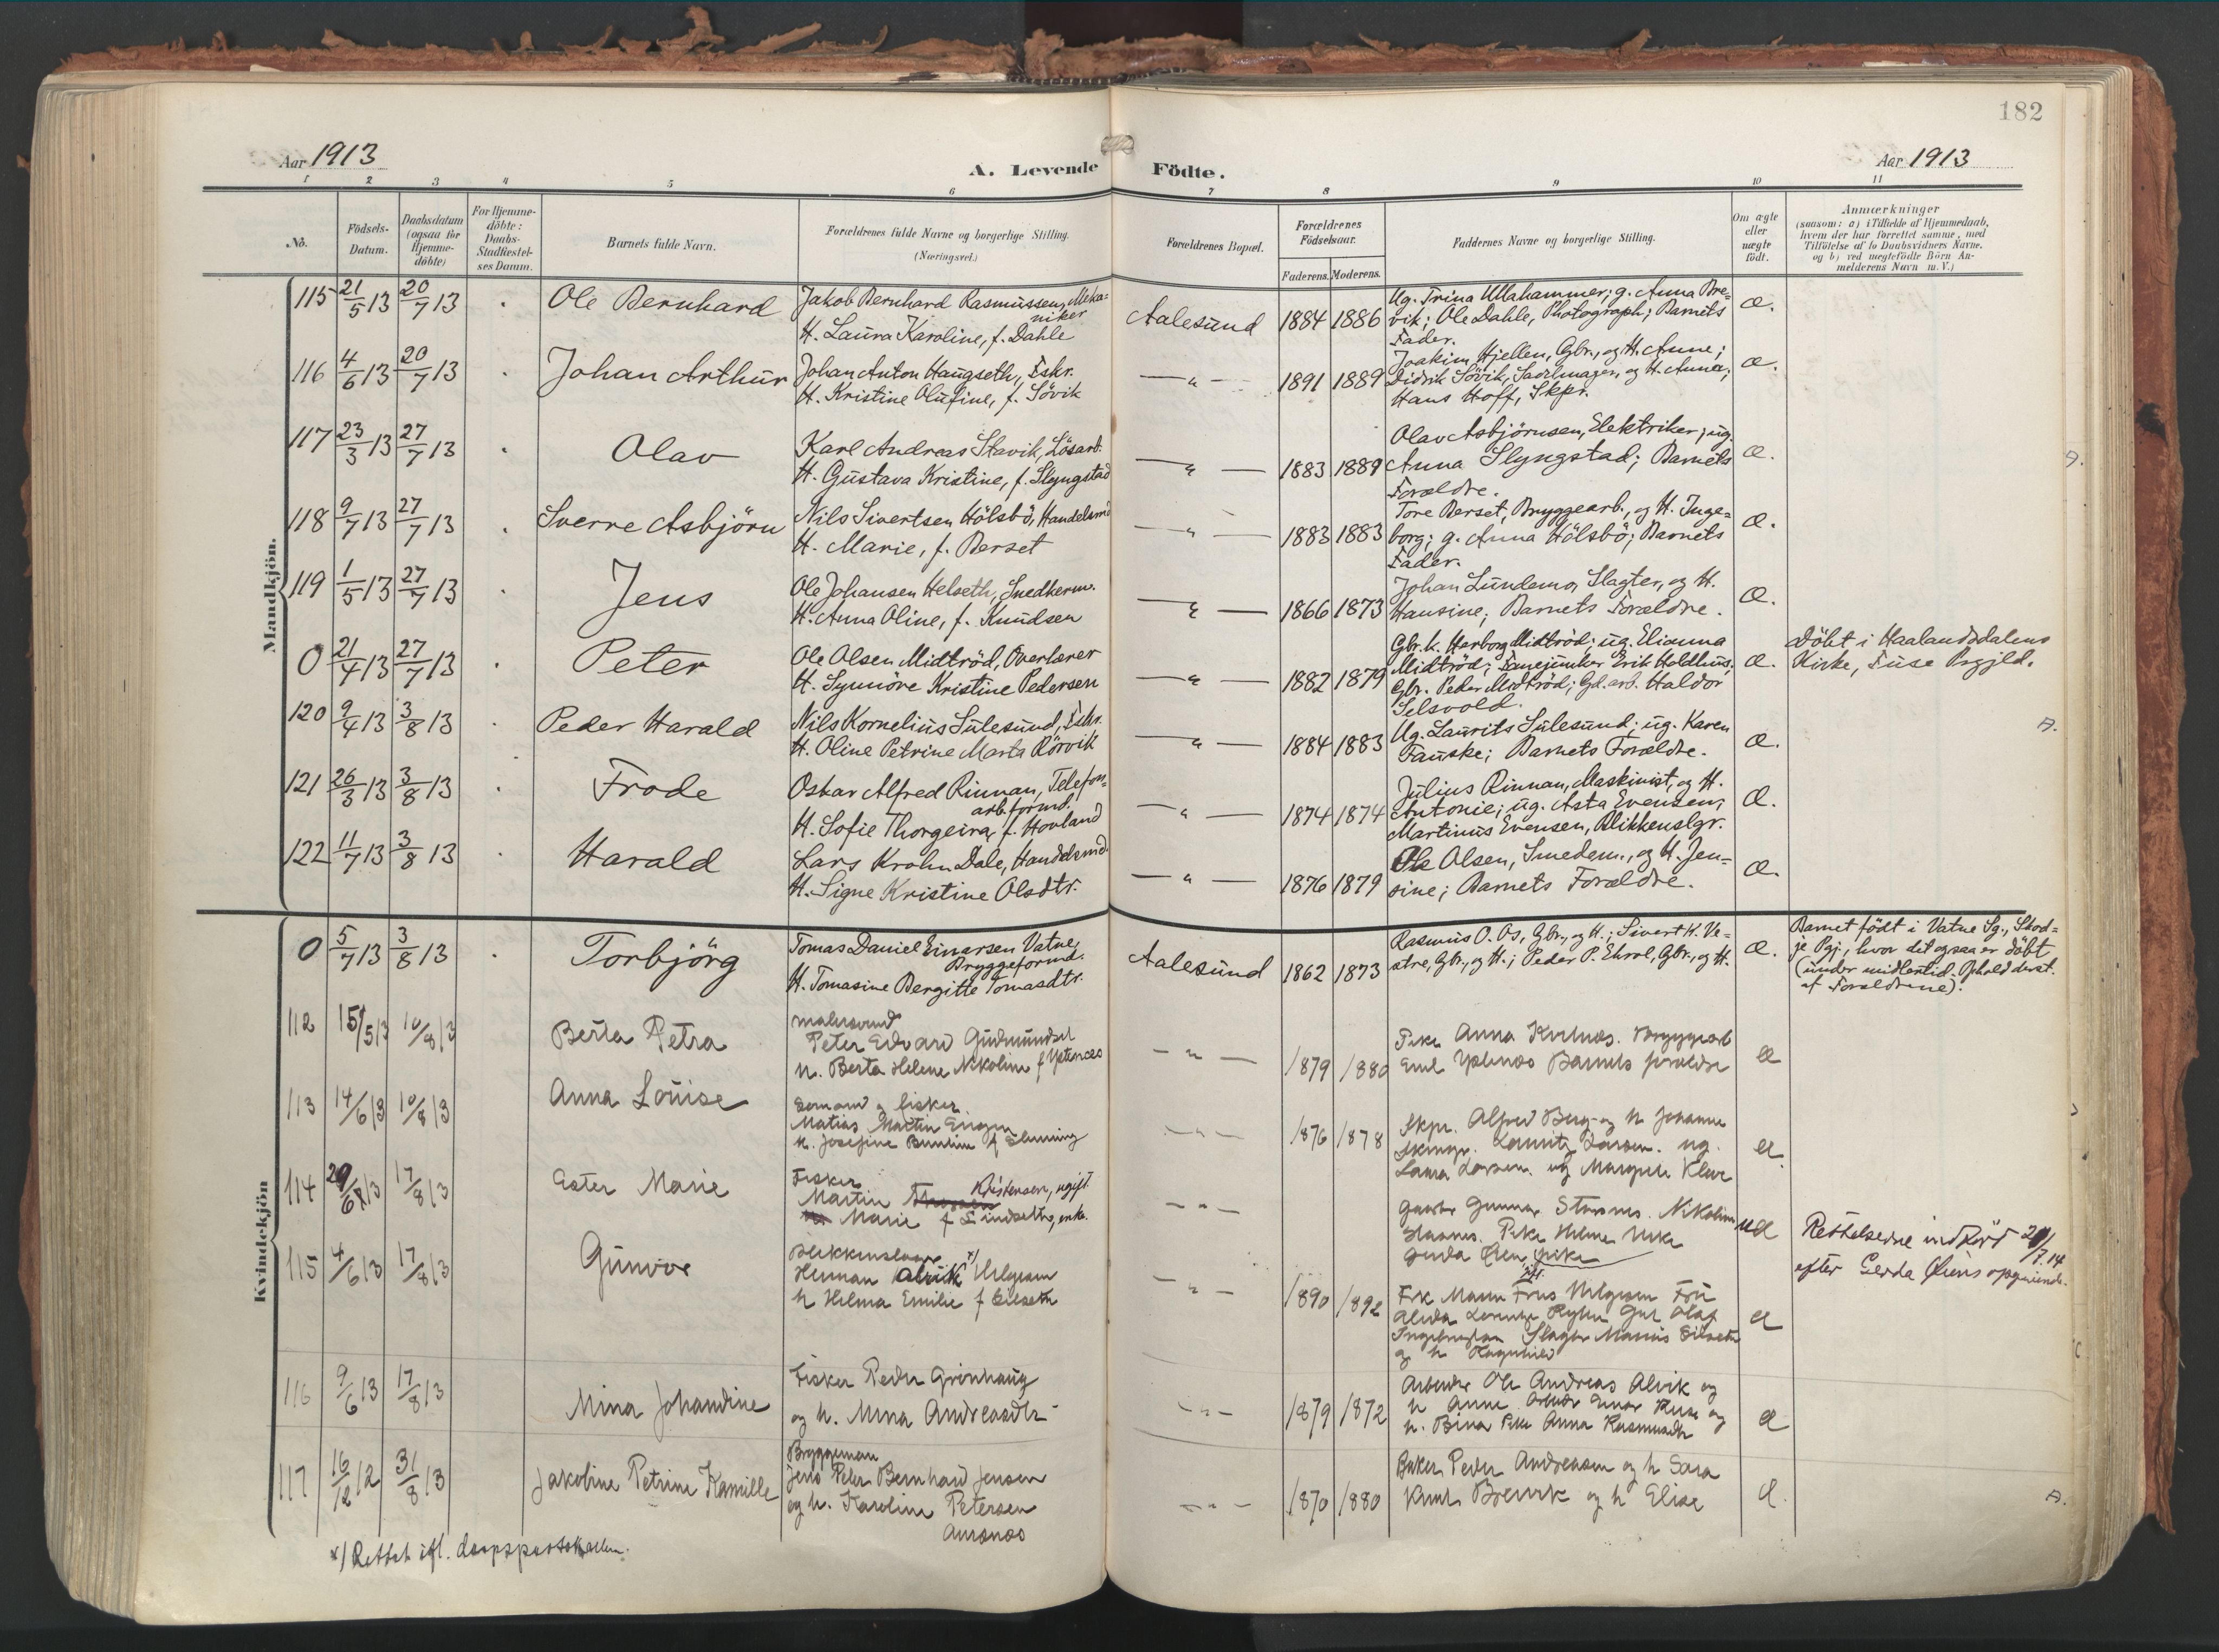 182
Aar 1913
A. Levende Födte.
Aar 1913
1 2 3 4 5 6 7 8 9 10 11
No.
Födsels-Datum.
Daabsdatum (ogsaa for Hjemme-döbte)
For Hjemme-döbte: Daabs-Stadfæstel-ses Datum.
Barnets fulde Navn.
Forældrenes fulde Navne og borgerlige Stilling. (Næringsvei.)
Forældrenes Bopæl.
Forældrenes Födselsaar.
Faderens. Moderens.
Faddernes Navne og borgerlige Stilling.
Om ægte eller uægte födt.
Anmærkninger
(saasom: a) i Tilfælde af Hjemmedaab,
hvem der har forrettet samme, med
Tilföielse af to Daabsvidners Navne.
og b) ved uegtefödte Börn An-
melderens Navn m. V.)
Mandkjön.
115 21/5 13 20/7 13 Ole Bernhard
Jakob Bernhard Rasmussen, Meka-
niker
H. Laura Karoline, f. Dahle
Aalesund 1884 1886
Ug. Trina Ullahammer; g. Anna Bre-
vik; Ole Dahle, Photograph; Barnets
Fader.
æ.
116 4/6 13 20/7 13 Johan Arthur
Johan Anton Haugseth, Fskr.
H. Kristine Olufine, f. Sövik
— " — 1891 1889
Joakim Hjellen, Gbr., og H. Anne;
Didrik Sövik, Sadelmager, og H. Anna;
Hans Hoff, Skpr.
æ.
117 23/3 13 27/7 13 Olav
Karl Andreas Stavik, Lösarb.
H. Gustava Kristine, f. Slyngstad
— " — 1883 1889
Olav Asbjörnsen, Elektriker; ug.
Anna Slyngstad; Barnets
Forældre.
æ.
118 9/7 13 27/7 13 Sverre Asbjörn
Nils Sivertsen Hölsbö, Handelsmd
H. Marie, f. Berset
— " — 1883 1883
Tore Berset, Bryggearb., og H. Inge-
borg; g. Anna Hölsbö; Barnets
Fader.
æ.
119 1/5 13 27/7 13 Jens
Ole Johansen Helseth, Snedkerm.
H. Anna Oline, f. Knudsen
— " — 1866 1873
Johan Lundemo, Slagter, og H.
Hansine; Barnets Forældre.
æ.
0 21/4 13 27/7 13 Peter
Ole Olsen Midtröd, Overlærer
H. Synnöve Kristine Pedersen
— " — 1882 1879
Gbr.k. Herborg Midtröd; ug. Elianna
Midtröd; Fanejunker Erik Holdhus;
Gbr. Peder Midtröd; Gd.arb. Haldor
Selsvold.
æ.
Döbt i Haalandsdalens
Kirke, Fuse Prgjld.
120 9/4 13 3/8 13 Peder Harald
Nils Kornelius Sulesund, Fskr.
H. Oline Petrine Marta Rörvik
— " — 1884 1883
Ug. Laurits Sulesund; ug. Karen
Fauske; Barnets Forældre.
æ.
121 26/3 13 3/8 13 Frode
Oskar Alfred Rinnan, Telefon-
arb.formd.
H. Sofie Thorgeira, f. Hovland
— " — 1874 1874
Julius Rinnan, Maskinist, og H.
Antonie; ug. Asta Evensen;
Martinus Evensen, Blikkenslgr.
æ.
122 11/7 13 3/8 13 Harald
Lars Krohn Dale, Handelsmd.
H. Signe Kristine Olsdtr.
— " — 1876 1879
Ole Olsen, Smedem., og H. Jen-
sine; Barnets Forældre.
æ.
Kvindekjön
0 5/7 13 3/8 13 Torbjörg
Tomas Daniel Einarsen Vatne,
Bryggeformd.
H. Tomasine Bergitte Tomasdtr.
Aalesund 1862 1873
Rasmus O. Os, Gbr., og H.; Sivert K. Ve-
stre, Gbr., og H.; Peder P. Ekrol, Gbr., og H.
æ.
Barnet födt i Vatne Sg., Skod-
je Pgj., hvor det ogsaa er döbt
(under midlertid. Ophold derst.
af Forældrene).
112 15/5 13 10/8 13 Berta Petra
Peter Edvard Gudmundset
H. Berta Helene Nikoline f Ystenes
— " — 1879 1880
Pike Anna Bryggearb
Emil Ystenes Barnets forældre
æ
113 14/6 13 10/8 13 Anna Louise
Sömand og fisker
Matias Martin
H. Josefine f
— " — 1876 1878
Skpr. Alfred Berg og h Johanne
Laurits Larsen. ug.
Laura Larsen. ug Margrete
æ
114 29/6 13 17/8 13 Ester Marie
Fisker
Martin Kristensen, ugift
Marie f Lindseth, enke.
— " —
Gunnar Nikoline
Pike Helene
Gerda
uæ
Rettelserne indfört
7.14
efter Gerda Øiens opgivende.
115 4/6 13 17/8 13 Gunvor
Blikkenslager x/
Herman Alvik Helgesen
h Helma Emilie f Eilseth
— " — 1890 1892
Olaf
Ingebrigtsen Slagter Masius Eilseth
og h Ragnhild
æ
116 9/6 13 17/8 13 Mina Johandine
Fisker Peder Grönhaug
og h. Mina Andreasdtr
— " — 1879 1872
Arbeider Ole Andreas Alvik og
h Anne Arbeider Einar og
h. Bina Pike Anna Rasmusdtr
æ
117 16/12 12 31/8 13 Jakobine Petrine Kamille
Bryggeman
Jens Peter Bernhard Jensen
og h. Karoline Petersen
— " — 1870 1880
Baker Peder Andreasen og h Sara
Knut Brevik og h Elise
æ.
x/ Rettet ifl. daapsprotokollen.